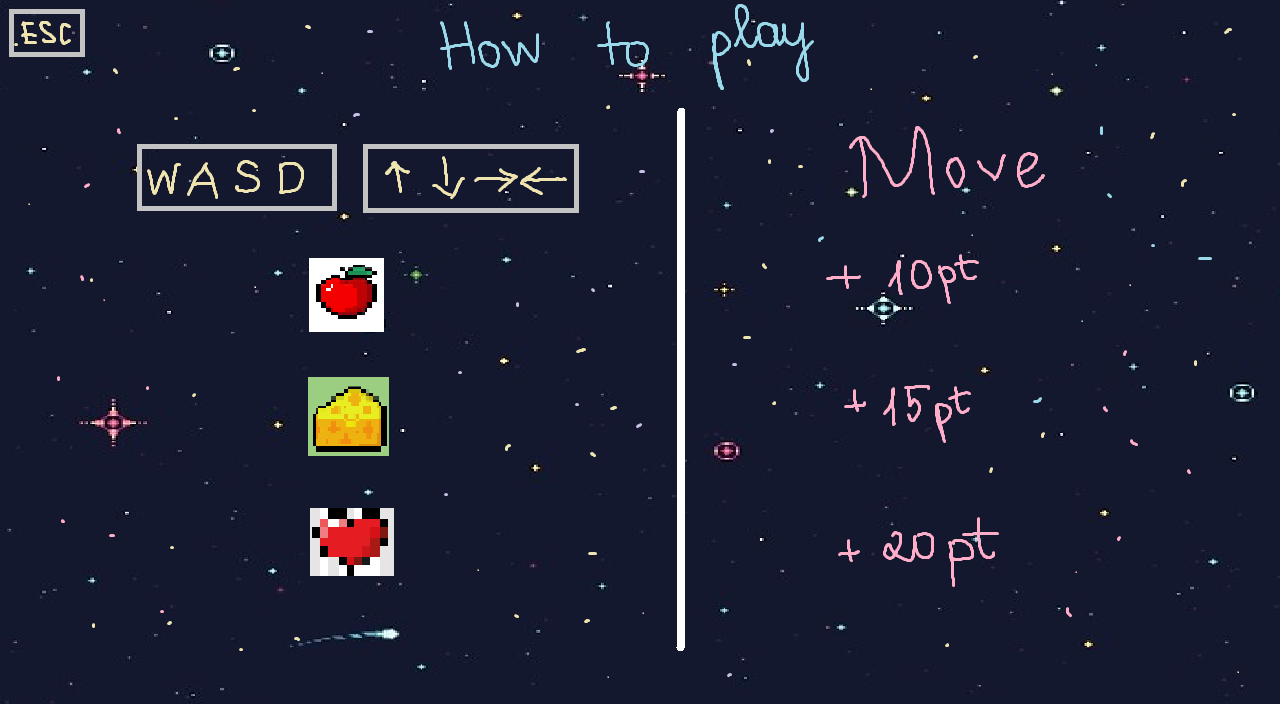 ESC
How to play
W A S D ↑ ↓ → ← Move
+ 10pt
+ 15pt
+ 20pt